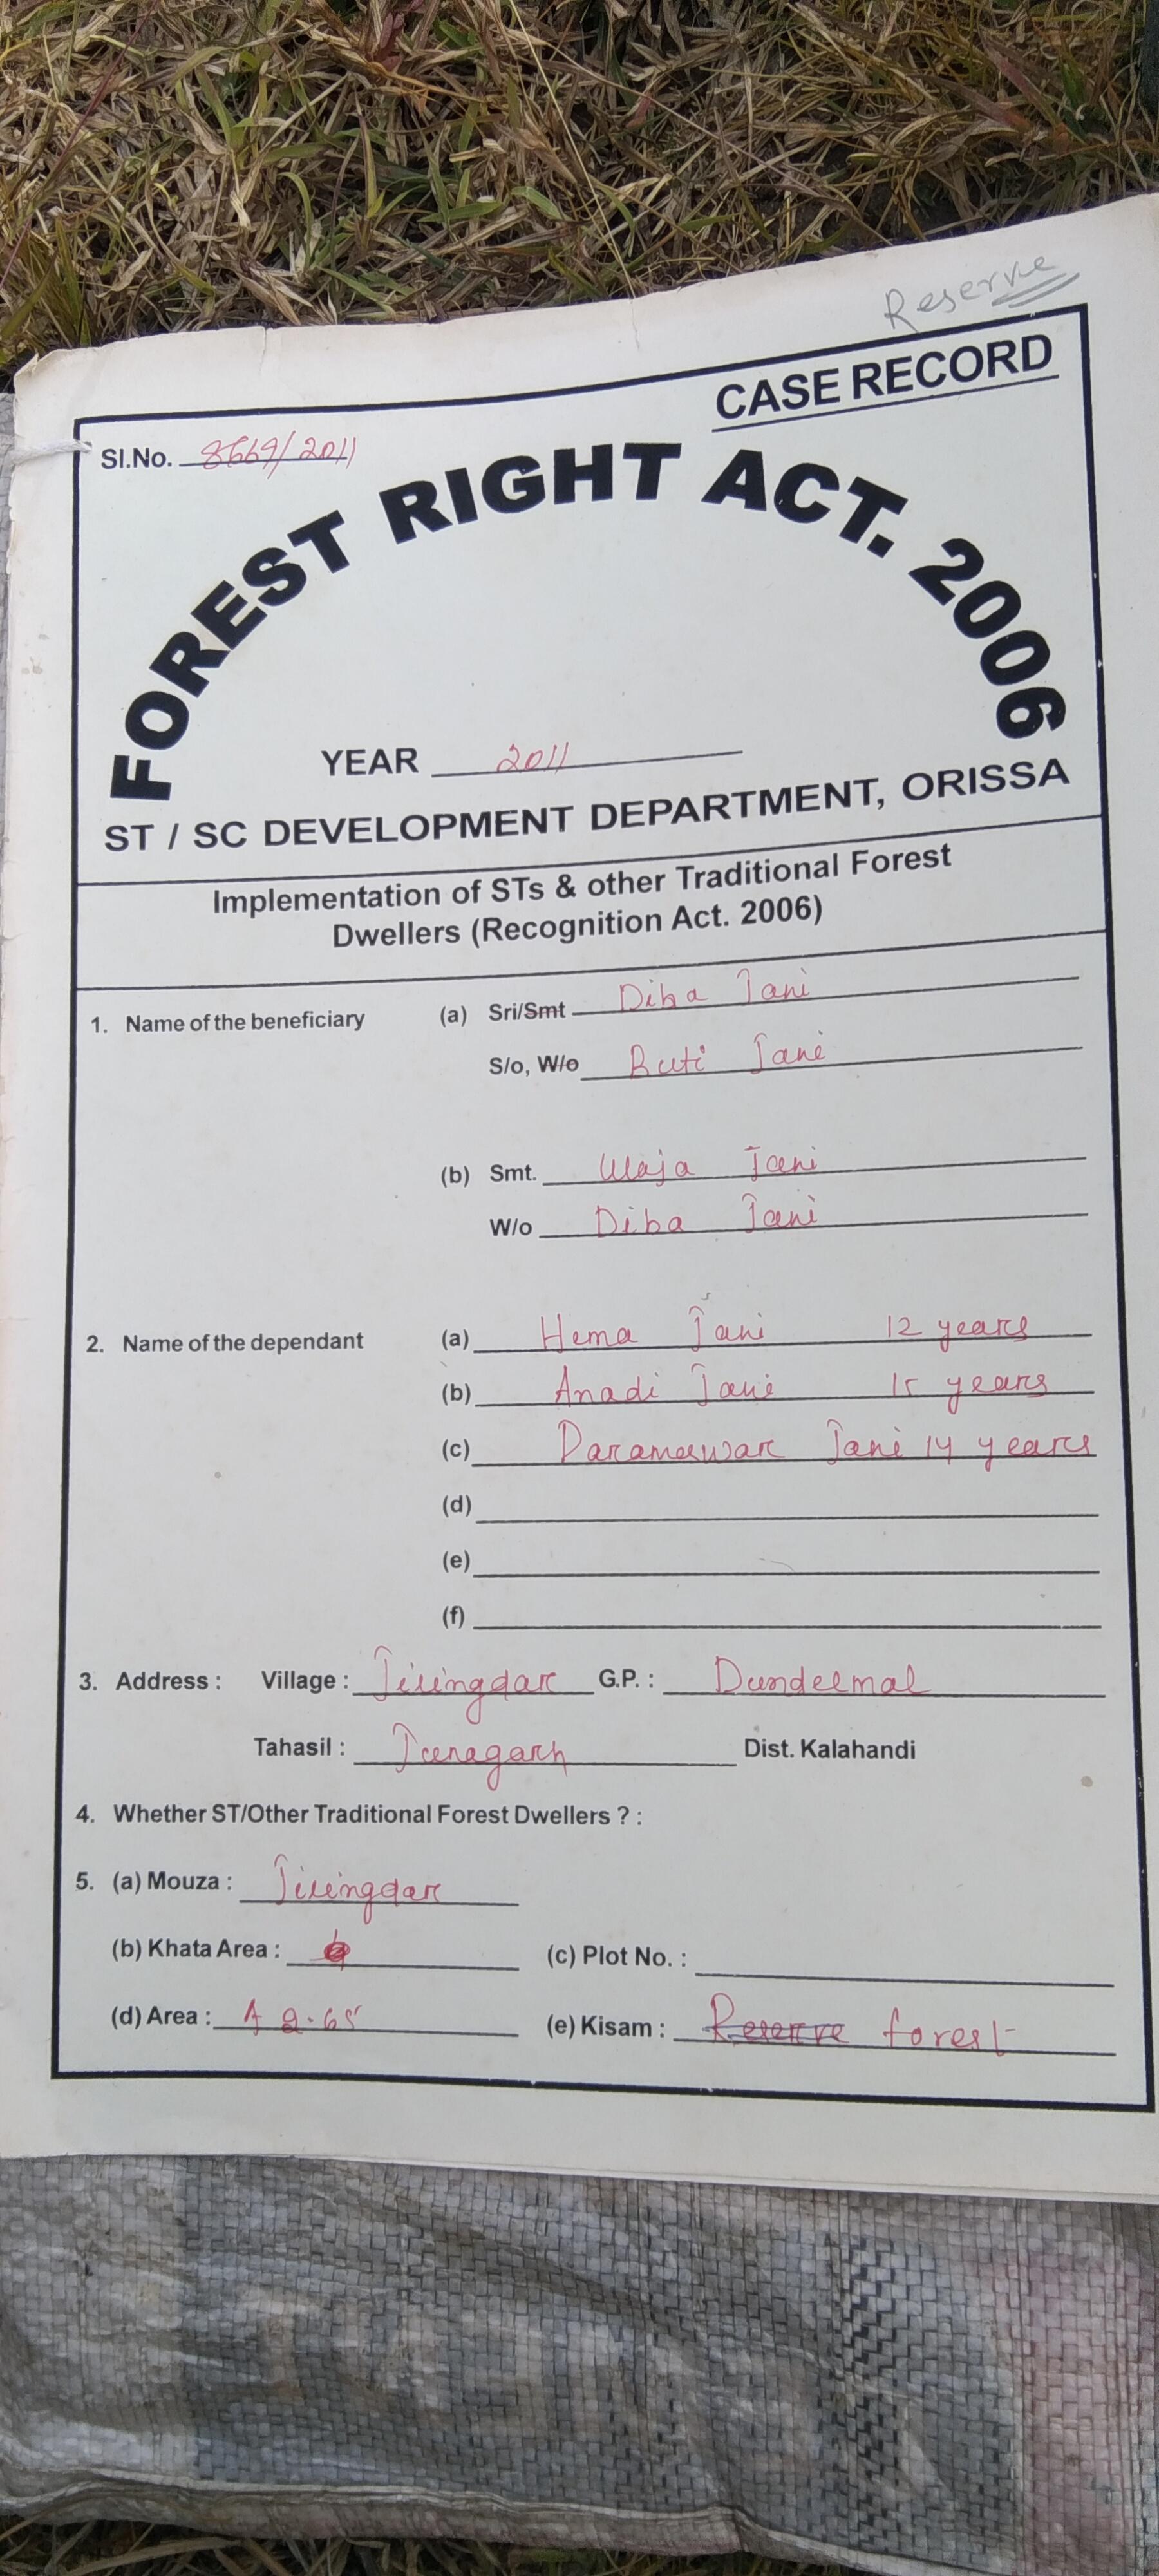 Reserve
CASE RECORD
Sl.No. 8669/2011
FOREST RIGHT ACT. 2006
YEAR 2011
ST / SC DEVELOPMENT DEPARTMENT, ORISSA
Implementation of STs & other Traditional Forest
Dwellers (Recognition Act. 2006)
1. Name of the beneficiary (a) Sri/Smt Diba Jani
S/o, W/o Buti Jani
(b) Smt. Jani
W/o Diba Jani
2. Name of the dependant (a) Hema Jani 12 years
(b) Anadi Jani 15 years
(c) Parameswar Jani 14 years
(d)
(e)
(f)
3. Address : Village : G.P. : Dundelmal
Tahasil : Junagarh Dist. Kalahandi
4. Whether ST/Other Traditional Forest Dwellers ? :
5. (a) Mouza :
(b) Khata Area : (c) Plot No. :
(d) Area : A 2.65 (e) Kisam : Reserve forest